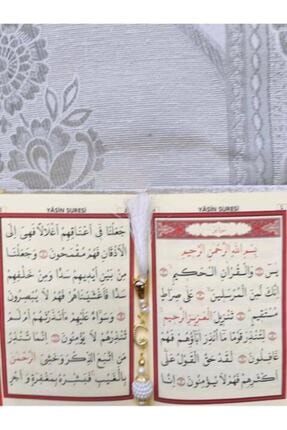 YÂSİN SURESİ
بِسْمِ اللّٰهِ الرَّحْمٰنِ الرَّحِيمِ
يٰسٓ وَالْقُرْاٰنِ الْحَكِيمِ
اِنَّكَ لَمِنَ الْمُرْسَلِينَ عَلٰى صِرَاطٍ
مُسْتَقِيمٍ تَنْزِيلَ الْعَزِيزِ الرَّحِيمِ
لِتُنْذِرَ قَوْمًا مَٓا اُنْذِرَ اٰبَٓاؤُهُمْ فَهُمْ
غَافِلُونَ لَقَدْ حَقَّ الْقَوْلُ عَلٰٓى
اَكْثَرِهِمْ فَهُمْ لَا يُؤْمِنُونَ اِنَّا
YÂSİN SURESİ
جَعَلْنَا فِٓى اَعْنَاقِهِمْ اَغْلَالًا فَهِىَ اِلَى
الْاَذْقَانِ فَهُمْ مُقْمَحُونَ وَجَعَلْنَا
مِنْ بَيْنِ اَيْدِيهِمْ سَدًّا وَمِنْ خَلْفِهِمْ
سَدًّا فَاَغْشَيْنَاهُمْ فَهُمْ لَا يُبْصِرُونَ
وَسَوَٓاءٌ عَلَيْهِمْ ءَاَنْذَرْتَهُمْ اَمْ لَمْ
تُنْذِرْهُمْ لَا يُؤْمِنُونَ اِنَّمَا تُنْذِرُ
مَنِ اتَّبَعَ الذِّكْرَ وَخَشِىَ الرَّحْمٰنَ
بِالْغَيْبِ فَبَشِّرْهُ بِمَغْفِرَةٍ وَاَجْرٍ